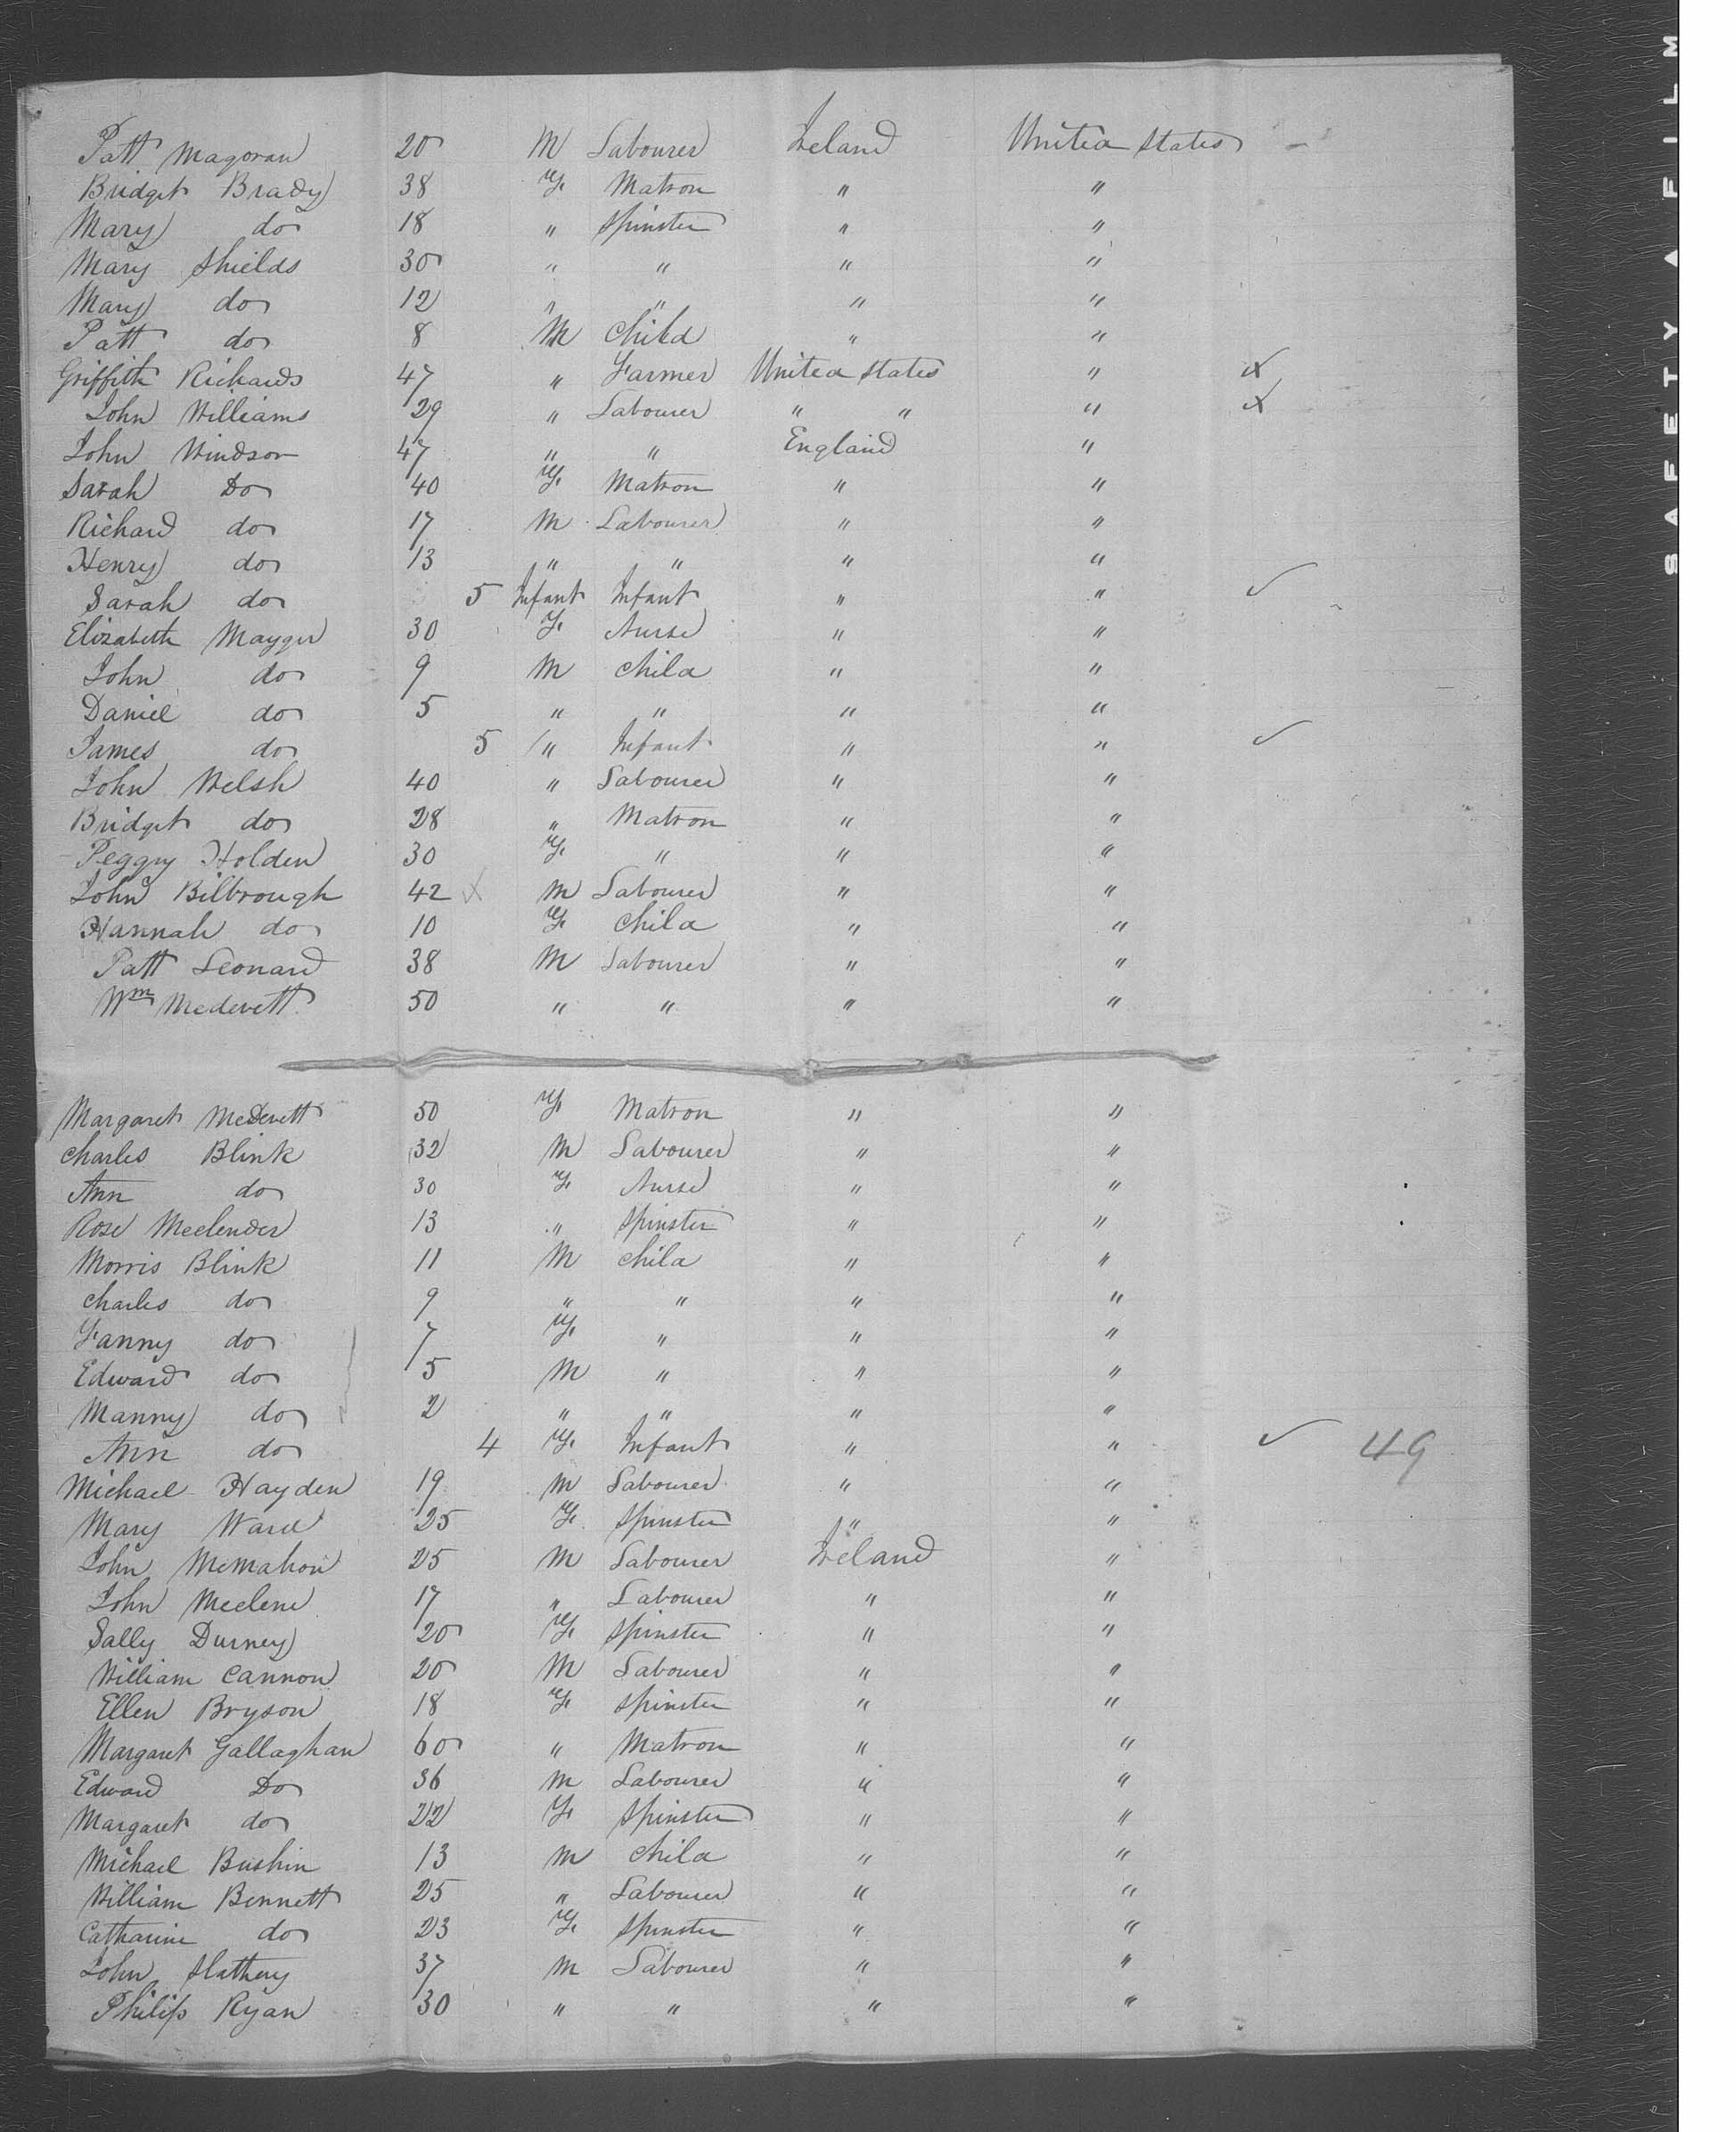 Patt Magoran 20 M Labourer Ireland United States -
Bridget Brady 38 F. Matron " "
Mary do 18 " Spinster " "
Mary Shields 30 " " " "
Mary do 12 " " " "
Patt do 8 M Child " "
Griffith Richards 47 " Farmer United States " X
John Williams 29 " Labourer " " " X
John Windson 47 " " England "
Sarah Do 40 F. Matron " "
Richard do 17 M Labourer " "
Henry do 13 " " " "
Sarah do 5 Infant Infant " " ✓
Elizabeth Mayger 30 F. Nurse " "
John do 9 M Child " "
Daniel do 5 " " " "
James do 5 " Infant " " ✓
John Welsh 40 " Labourer " "
Bridget do 28 " Matron " "
Peggy Holden 30 F. " " "
John Bilbrough 42 X M Labourer " "
Hannah do 10 F. Child " "
Patt Leonard 38 M Labourer " "
Wm McDevett 50 " " " "
Margaret McDevett 50 F. Matron " "
Charles Blink 32 M Labourer " "
Ann do 30 F. Nurse " "
Rose Meclender 13 " Spinster " "
Morris Blink 11 M Child " "
Charles do 9 " " " "
Fanny do 7 F. " " "
Edward do 5 M " " "
Manny do 2 " " " "
Ann do 4 F. Infant " " ✓ 49
Michael Hayden 19 M Labourer " "
Mary Ward 25 F. Spinster " "
John McMahon 25 M Labourer Ireland "
John Meclene 17 " Labourer " "
Sally Durney 20 F. Spinster " "
William Cannon 20 M Labourer " "
Ellen Bryson 18 F. Spinster " "
Margaret Gallaghan 60 " Matron " "
Edward Do 36 M Labourer " "
Margaret do 22 F. Spinster " "
Michael Bushin 13 M Child " "
William Bennett 25 " Labourer " "
Catharine do 23 F. Spinster " "
John Slathery 37 M Labourer " "
Philip Ryan 30 " " " "
SAFETY A FILM